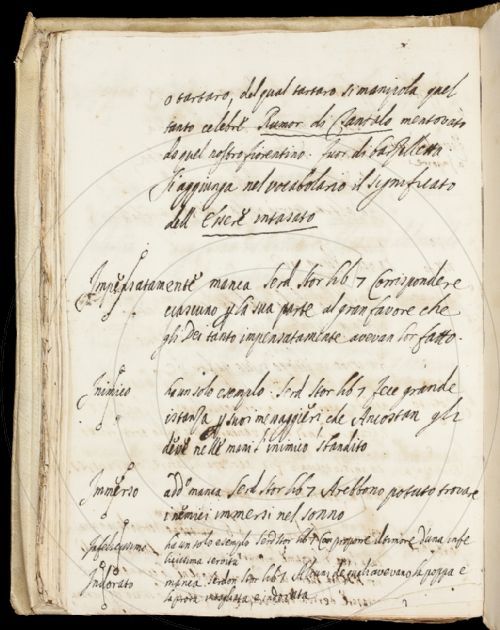 o tartaro, del qual tartaro si manipola quel
tanto celebre Rumor di Tantalo mentovato
da quel nostro fiorentino. fuor di
Si aggiunga nel vocabolario il significato
dell' Essere intasato
Impensatamente manca Serd Stor lib 7 Corrispondere
ciascuno p la sua parte al gran favore che
gli Dei tanto impensatamente avevan lor fatto.
Inimico ha un solo esempio. Serd Stor lib 7 fece grande
istanza p suoi messaggieri che Ancostan gli
desse nelle mani l' inimico sbandito
Immerso add manca Serd Stor lib 7 Avebbono potuto trovare
i nemici immersi nel sonno
Infelicissimo ha un solo esempio Serd Stor lib 7 Con proporre il timore d'una infe
licissima servitù
Indorato manca Serdon Stor lib 7 de quali avevano la poppa e
la prora e indorata